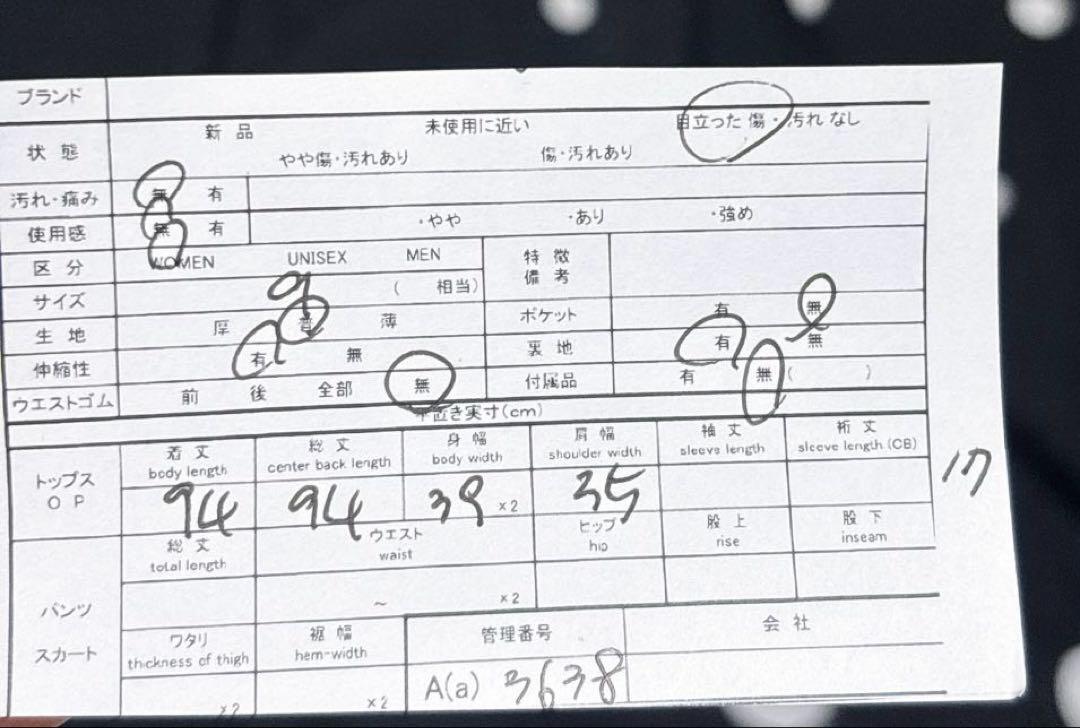 ブランド
状態 新品 未使用に近い 目立った傷・汚れなし
やや傷・汚れあり 傷・汚れあり
汚れ・痛み 無 有
使用感 無 有 ・やや ・あり ・強め
区分 WOMEN UNISEX MEN 特徴備考
サイズ 9 ( 相当)
生地 厚 普 薄 ポケット 有 無
伸縮性 有 無 裏地 有 無
ウエストゴム 前 後 全部 無 付属品 有 無 ( )
平置き実寸(cm)
トップス OP 着丈 総丈 身幅 肩幅 袖丈 裄丈
body length center back length body width shoulder width sleeve length sleeve length (CB)
94 94 39 ×2 35 17
パンツ スカート 総丈 ウエスト ヒップ 股上 股下
total length waist hip rise inseam
~ ×2
ワタリ 裾幅 管理番号 会社
thickness of thigh hem-width
×2 ×2 A(a) 3638